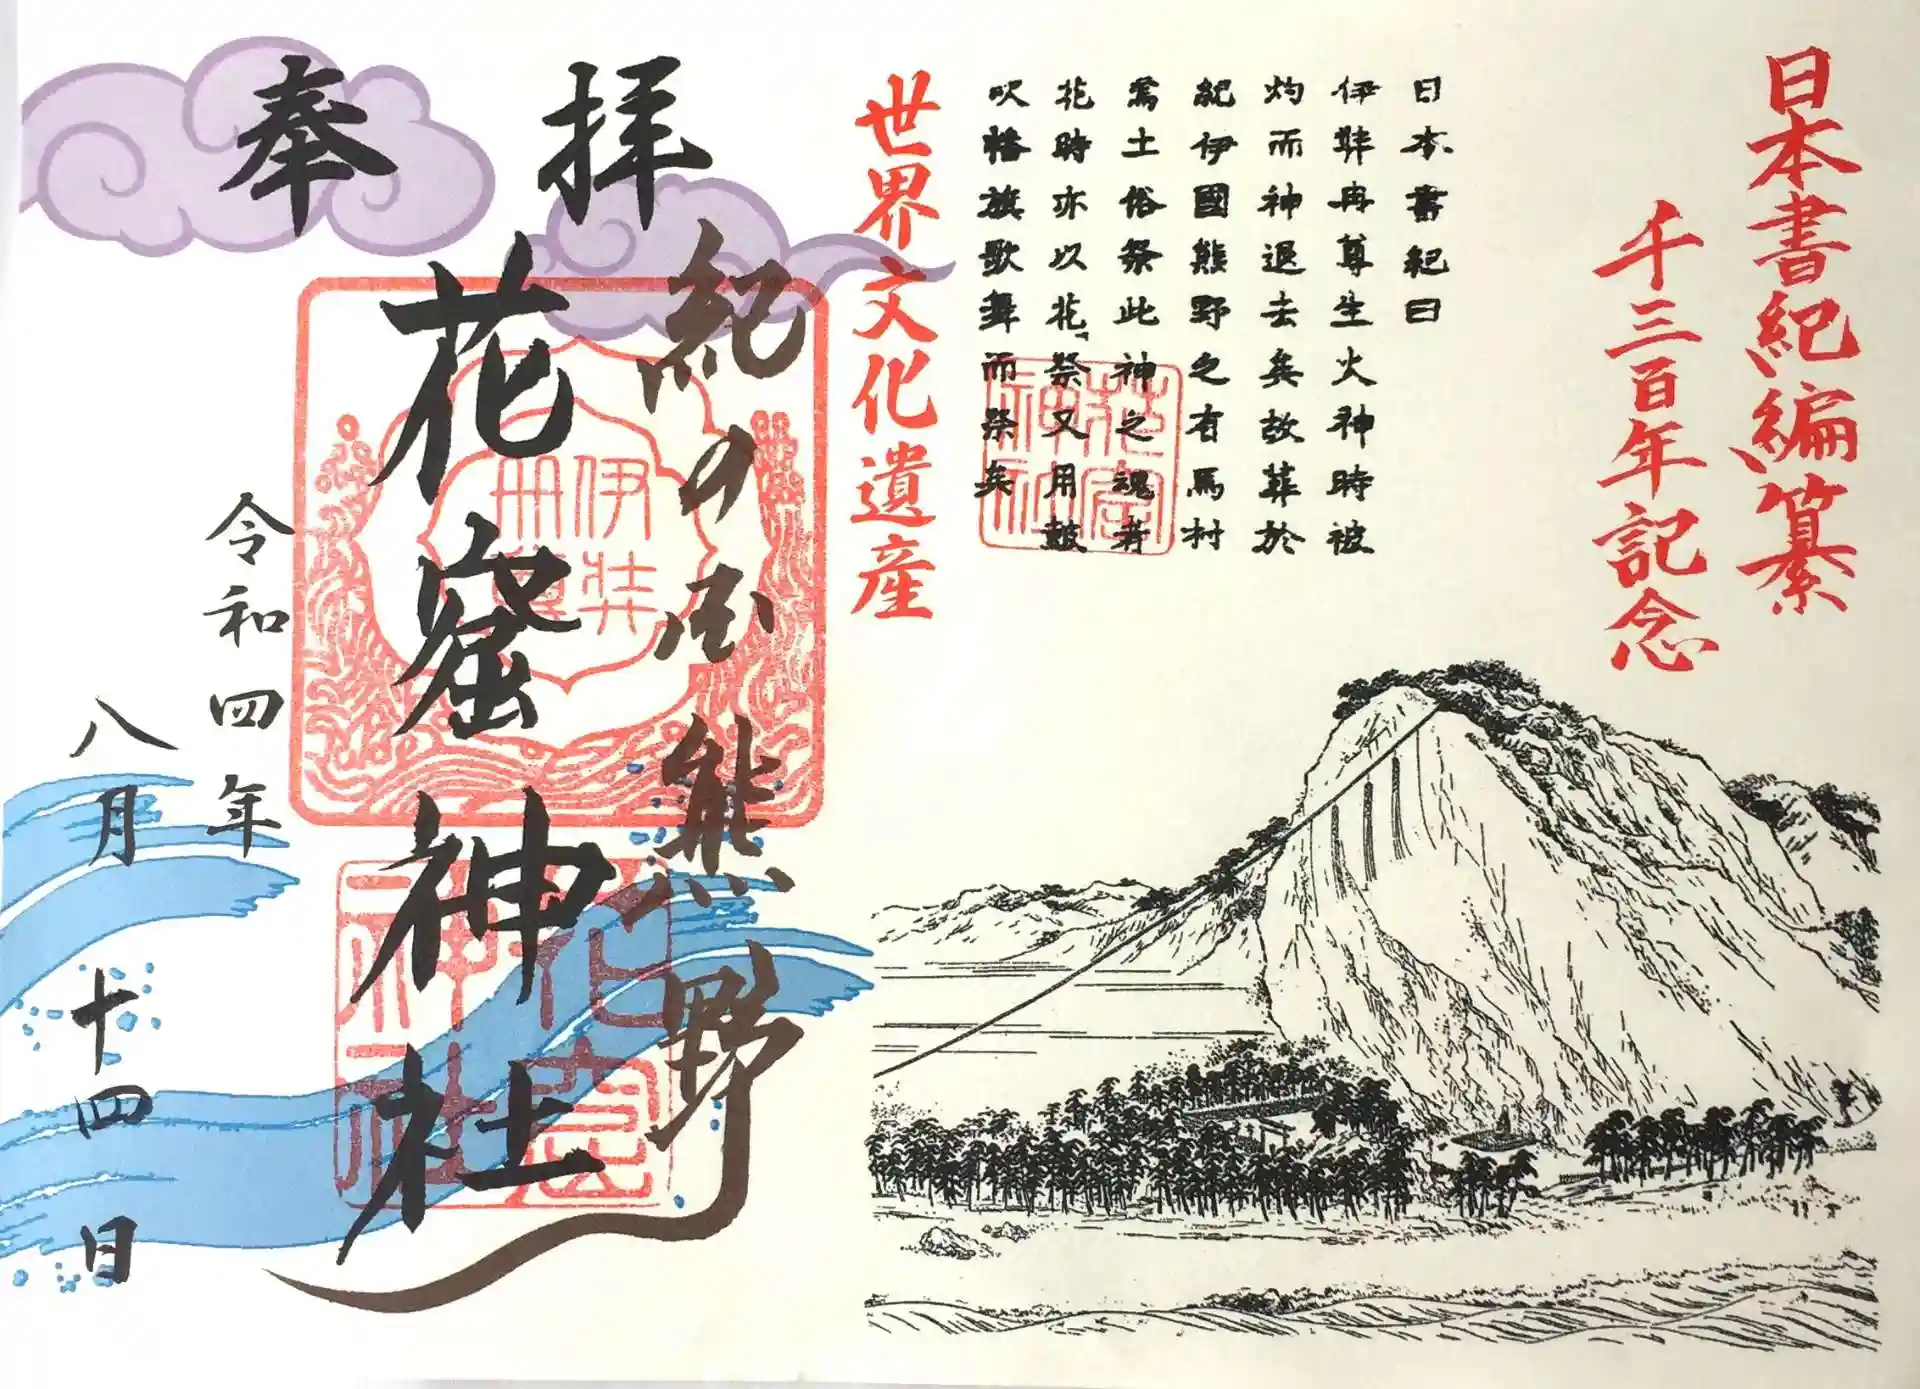 日本書紀編纂
千三百年記念
日本書紀曰
伊弉冉尊生火神時被
灼而神退去矣故葬於
紀伊國熊野之有馬村
焉土俗祭此神之魂者
花時亦以花祭又用鼓
吹幡旗歌舞而祭矣
世界文化遺産
奉拝
紀の国熊野
花窟神社
令和四年
八月十四日
伊弉
冊尊
花窟
神社
花窟
神社